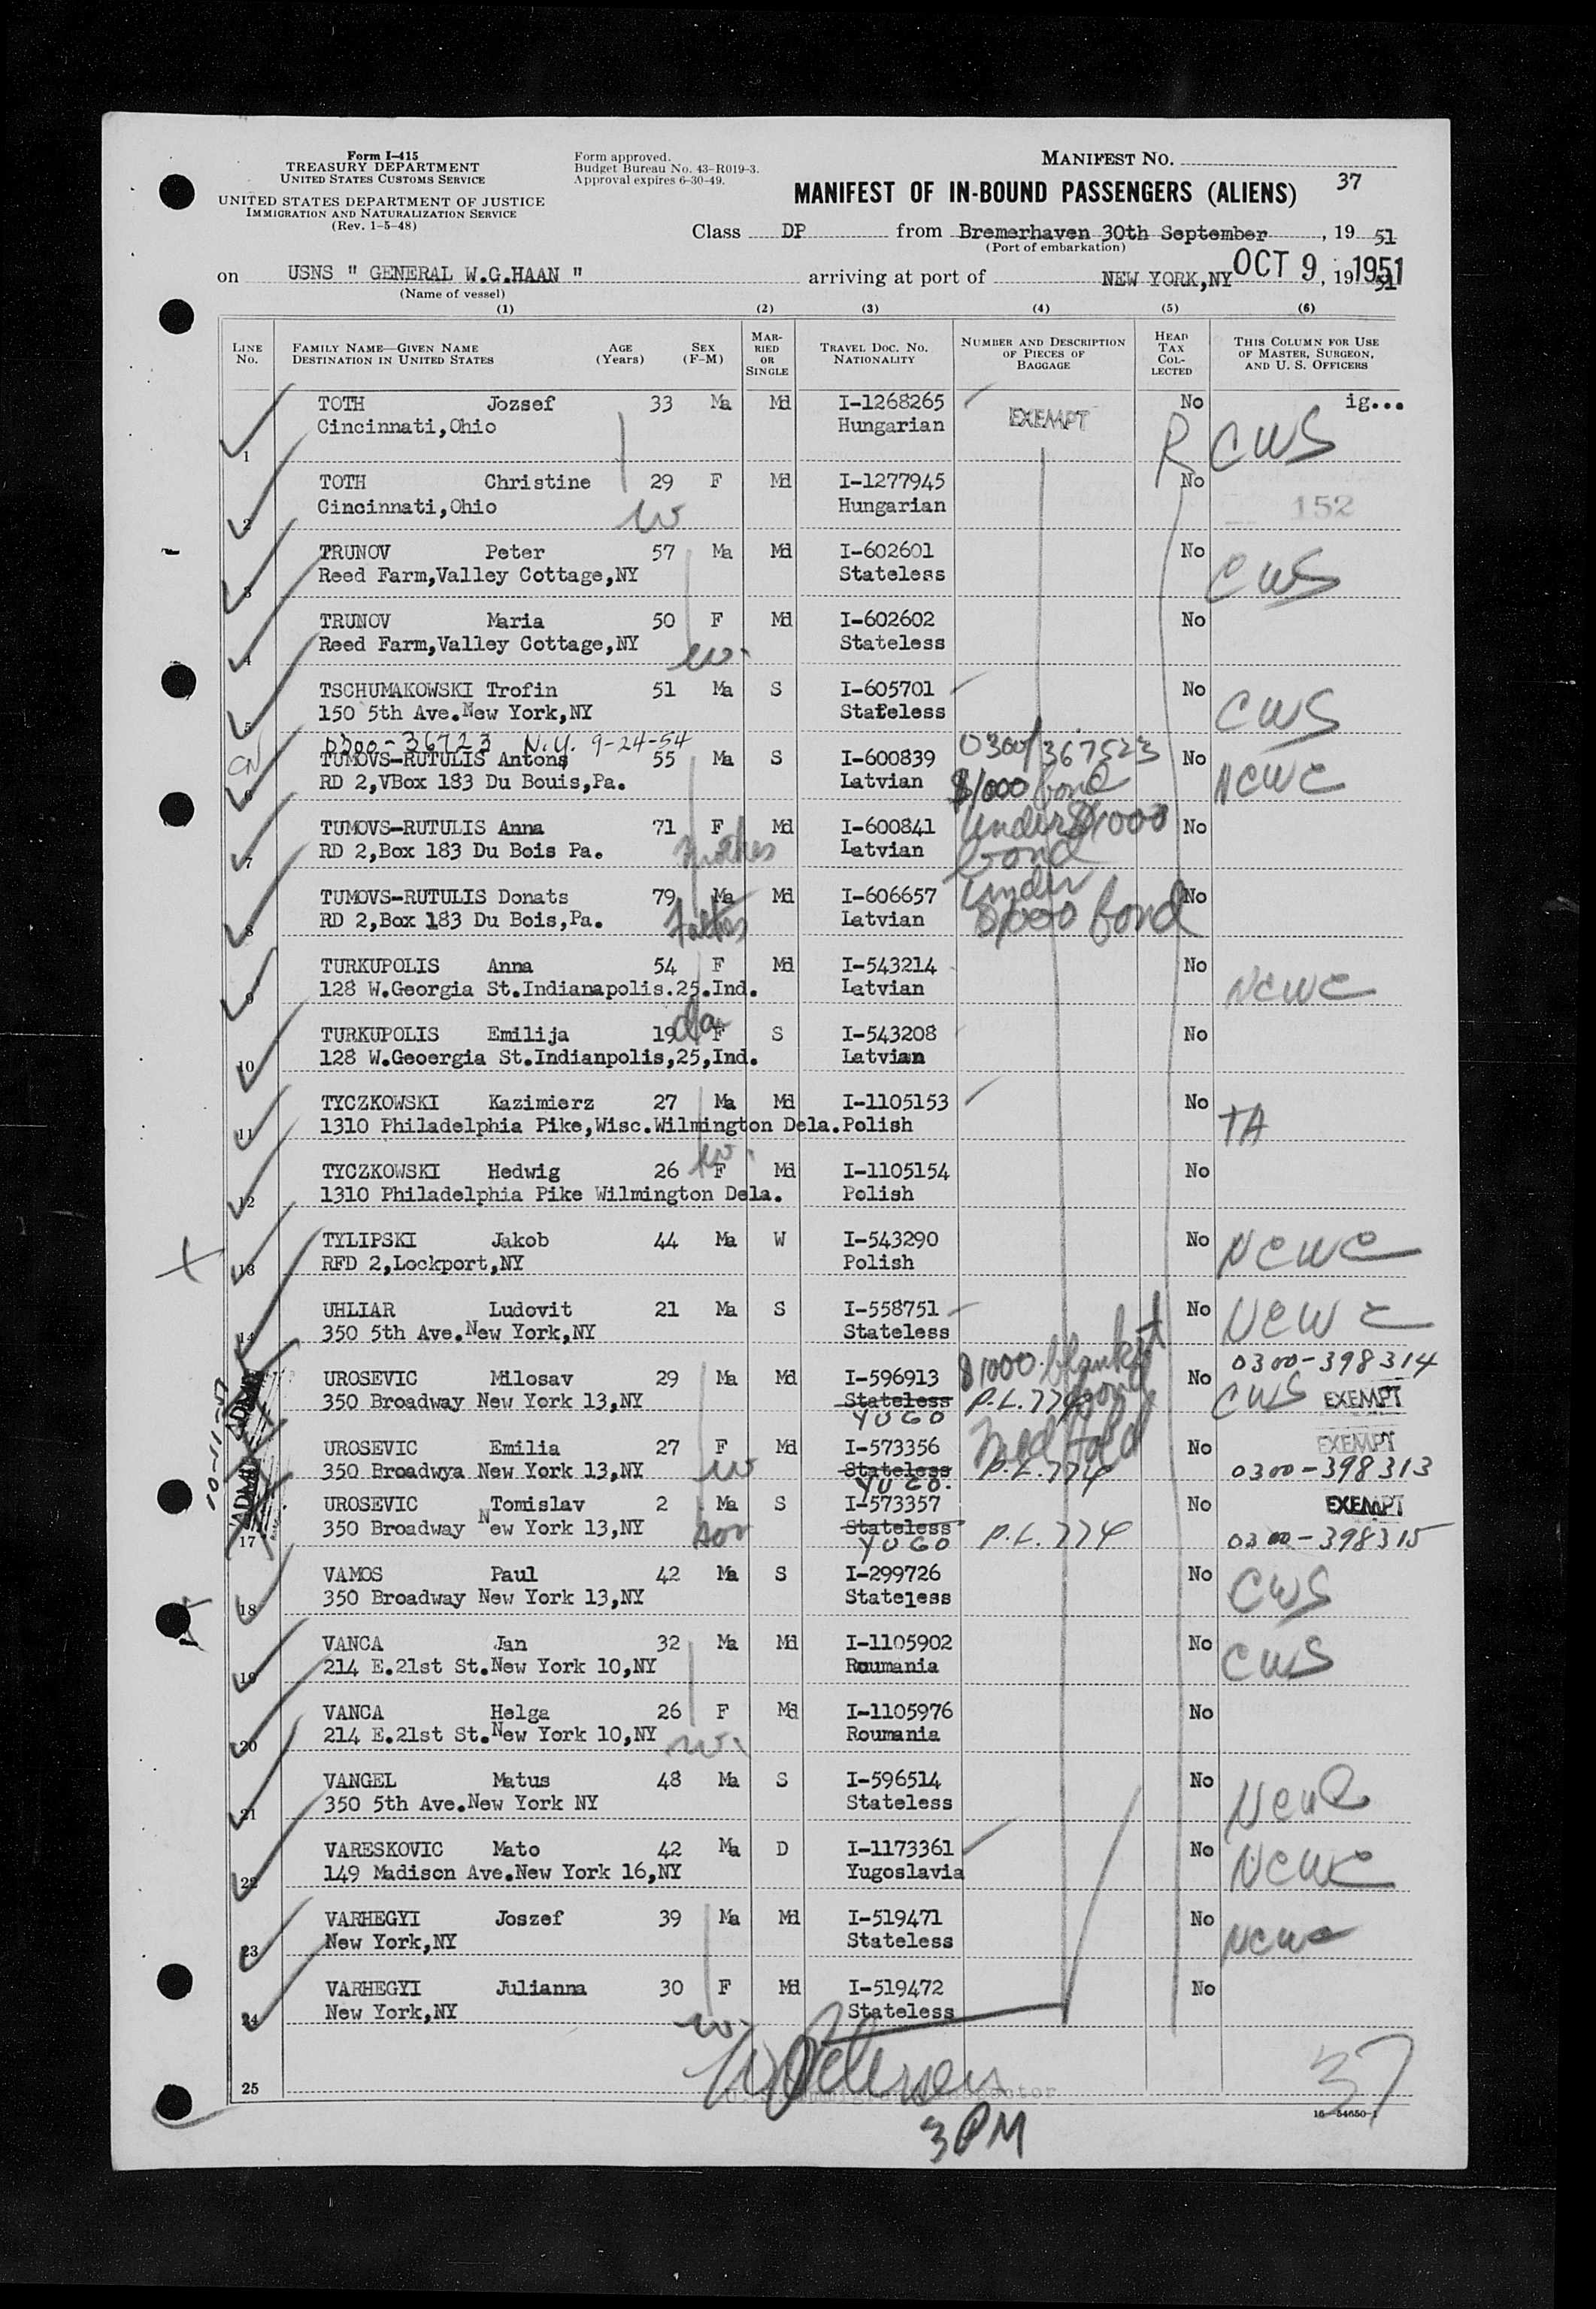 Form I-415
TREASURY DEPARTMENT
UNITED STATES CUSTOMS SERVICE
UNITED STATES DEPARTMENT OF JUSTICE
IMMIGRATION AND NATURALIZATION SERVICE
(Rev. 1-5-48)
Form approved.
Budget Bureau No. 43-R019-3.
Approval expires 6-30-49.
MANIFEST NO.
MANIFEST OF IN-BOUND PASSENGERS (ALIENS) 37
Class DP from Bremerhaven 30th September, 19 51
(Port of embarkation)
on USNS " GENERAL W.G.HAAN " arriving at port of NEW YORK,NY OCT 9 , 19 1951
(Name of vessel)
(1) (2) (3) (4) (5) (6)
LINE No. FAMILY NAME—GIVEN NAME DESTINATION IN UNITED STATES AGE (Years) SEX (F-M) MARRIED OR SINGLE TRAVEL DOC. NO. NATIONALITY NUMBER AND DESCRIPTION OF PIECES OF BAGGAGE HEAD TAX COLLECTED THIS COLUMN FOR USE OF MASTER, SURGEON, AND U. S. OFFICERS
TOTH Jozsef 33 Ma Md I-1268265 EXEMPT No ig...
1 Cincinnati,Ohio Hungarian R CWS
TOTH Christine 29 F Md I-1277945 No
2 Cincinnati,Ohio w Hungarian 152
TRUNOV Peter 57 Ma Md I-602601 No
3 Reed Farm,Valley Cottage,NY Stateless CWS
TRUNOV Maria 50 F Md I-602602 No
4 Reed Farm,Valley Cottage,NY w. Stateless
TSCHUMAKOWSKI Trofin 51 Ma S I-605701 No
5 150 5th Ave.New York,NY Stateless CWS
0300-36723 N.Y. 9-24-54
TUMOVS-RUTULIS Antons 55 Ma S I-600839 0300/367523 No
6 RD 2,VBox 183 Du Bouis,Pa. Latvian $1000 bond NCWC
TUMOVS-RUTULIS Anna 71 F Md I-600841 under $1000 No
7 RD 2,Box 183 Du Bois Pa. Mother Latvian bond
TUMOVS-RUTULIS Donats 79 Ma Md I-606657 under No
8 RD 2,Box 183 Du Bois,Pa. Father Latvian $1,000 bond
TURKUPOLIS Anna 54 F Md I-543214 No
9 128 W.Georgia St.Indianapolis.25.Ind. Latvian NCWC
TURKUPOLIS Emilija 19 da F S I-543208 No
10 128 W.Geoergia St.Indianpolis,25,Ind. Latvian
TYCZKOWSKI Kazimierz 27 Ma Md I-1105153 No
11 1310 Philadelphia Pike,Wisc.Wilmington Dela.Polish TA
TYCZKOWSKI Hedwig 26 w. F Md I-1105154 No
12 1310 Philadelphia Pike Wilmington Dela. Polish
TYLIPSKI Jakob 44 Ma W I-543290 No
13 RFD 2,Lockport,NY Polish NCWC
UHLIAR Ludovit 21 Ma S I-558751 No
14 350 5th Ave.New York,NY Stateless NCWC
UROSEVIC Milosav 29 Ma Md I-596913 $1000 blanket bond No 0300-398314
350 Broadway New York 13,NY Stateless YUGO P.L.774 CWS EXEMPT
UROSEVIC Emilia 27 F Md I-573356 Med Hold No EXEMPT
350 Broadwya New York 13,NY w Stateless YUGO. P.L.774 0300-398313
10-11-51
UROSEVIC Tomislav 2 Ma S I-573357 No EXEMPT
17 350 Broadway New York 13,NY son Stateless YUGO P.L. 774 0300-398315
VAMOS Paul 42 Ma S I-299726 No
18 350 Broadway New York 13,NY Stateless CWS
VANCA Jan 32 Ma Md I-1105902 No
19 214 E.21st St.New York 10,NY Roumania CWS
VANCA Helga 26 F Md I-1105976 No
20 214 E.21st St.New York 10,NY w. Roumania
VANGEL Matus 48 Ma S I-596514 No
21 350 5th Ave.New York NY Stateless NCWC
VARESKOVIC Mato 42 Ma D I-1173361 No
22 149 Madison Ave.New York 16,NY Yugoslavia NCWC
VARHEGYI Joszef 39 Ma Md I-519471 No
23 New York,NY Stateless NCWC
VARHEGYI Julianna 30 F Md I-519472 No
24 New York,NY w. Stateless
25
37
16—54650-1
3 PM